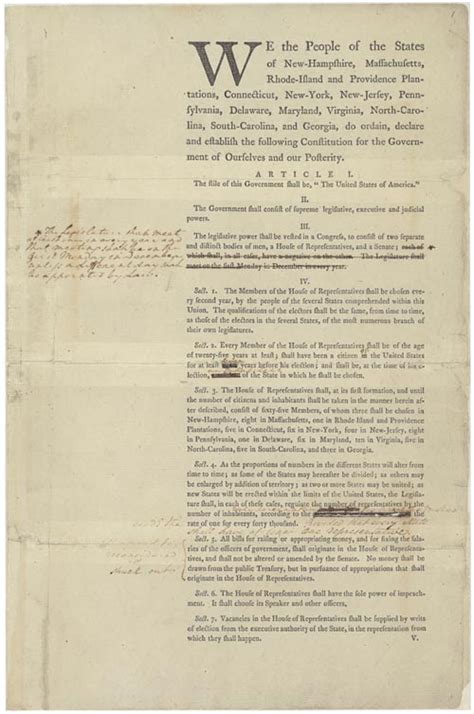 WE the People of the States
of New-Hampshire, Massachusetts,
Rhode-Island and Providence Plan-
tations, Connecticut, New-York, New-Jersey, Penn-
sylvania, Delaware, Maryland, Virginia, North-Caro-
lina, South-Carolina, and Georgia, do ordain, declare
and establish the following Constitution for the Govern-
ment of Ourselves and our Posterity.
ARTICLE I.
The stile of this Government shall be, "The United States of America."
II.
The Government shall consist of supreme legislative, executive and judicial
powers.
III.
The legislative power shall be vested in a Congress, to consist of two separate
and distinct bodies of men, a House of Representatives, and a Senate; each of
which shall, in all cases, have a negative on the other. The Legislature shall
meet on the first Monday in December in every year.
The Legislature shall meet
at least once in every year and
that meeting shall be on the
first Monday in December
unless a different day shall
be appointed by law.
IV.
Sect. 1. The Members of the House of Representatives shall be chosen
every second year, by the people of the several States comprehended within this
Union. The qualifications of the electors shall be the same, from time to time,
as those of the electors in the several States, of the most numerous branch of
their own legislatures.
Sect. 2. Every Member of the House of Representatives shall be of the age
of twenty-five years at least; shall have been a citizen in the United States
for at least years before his election; and shall be, at the time of his
election, of the State in which he shall be chosen.
Sect. 3. The House of Representatives shall, at its first formation, and until
the number of citizens and inhabitants shall be taken in the manner herein after
described, consist of sixty-five Members, of whom three shall be chosen in
New-Hampshire, eight in Massachusetts, one in Rhode Island and Providence
Plantations, five in Connecticut, six in New-York, four in New-Jersey, eight
in Pennsylvania, one in Delaware, six in Maryland, ten in Virginia, five in
North-Carolina, five in South-Carolina, and three in Georgia.
Sect. 4. As the proportions of numbers in the different States will alter from
time to time; as some of the States may hereafter be divided; as others may
be enlarged by addition of territory; as two or more States may be united; as
new States will be erected within the limits of the United States, the Legisla-
ture shall, in each of these cases, regulate the number of representatives by the
number of inhabitants, according to the
rate of one for every forty thousand.
Sect. 5. All bills for raising or appropriating money, and for fixing the salaries
of the officers of government, shall originate in the House of Representa-
tives, and shall not be altered or amended by the Senate. No money shall be
drawn from the public Treasury, but in pursuance of appropriations that shall
originate in the House of Representatives.
struck out
Sect. 6. The House of Representatives shall have the sole power of impeach-
ment. It shall choose its Speaker and other officers,
Sect. 7. Vacancies in the House of Representatives shall be supplied by writs
of election from the executive authority of the State, in the representation from
which they shall happen. V.